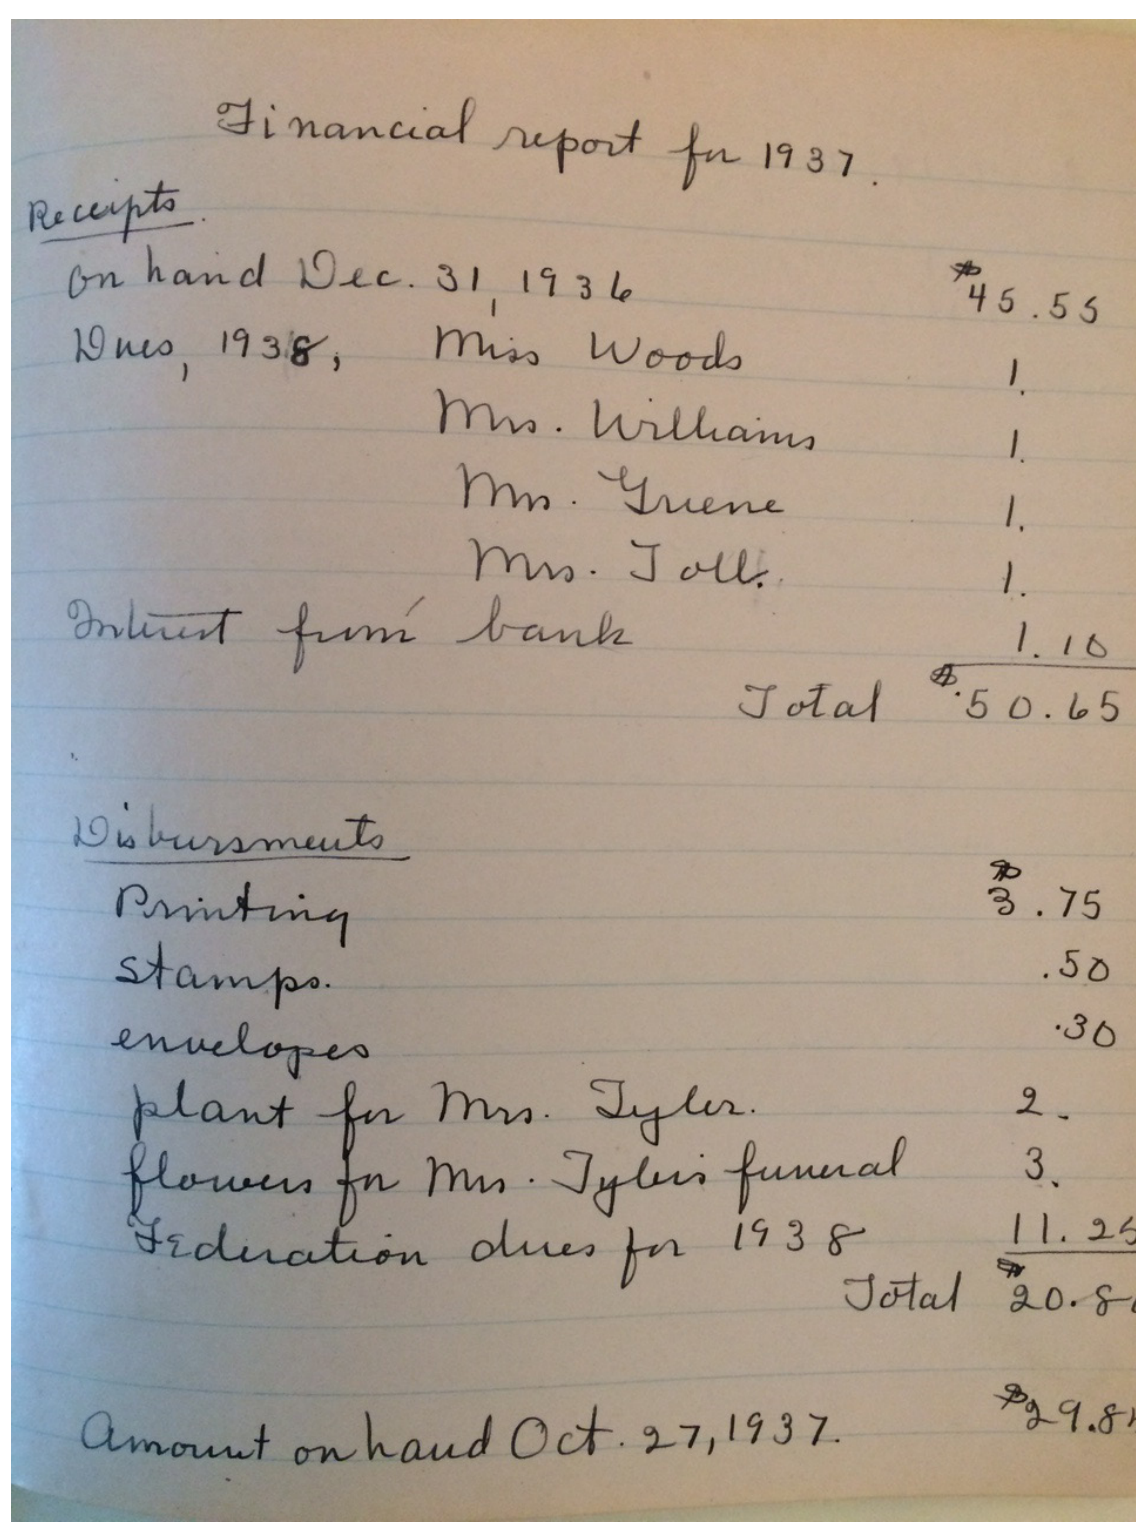 Financial report for 1937.
Receipts.
on hand Dec. 31, 1936 $45.55
Dues, 1938, Miss Woods 1.
Mrs. Williams 1.
Mrs. Greene 1.
Mrs. Toll. 1.
Interest from bank 1.10
Total $50.65
Disbursments
Printing $3.75
stamps. .50
envelopes .30
plant for Mrs. Tyler. 2.
flowers for Mrs. Tyler's funeral 3.
Federation dues for 1938 11.25
Total $20.8
Amount on hand Oct. 27, 1937. $29.8